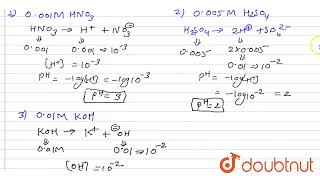 1) 0.001M HNO₃
HNO₃ → H⁺ + NO₃⊖
0.001 0.001 ⇒ 10⁻³
[H⁺] = 10⁻³
pH = -log[H⁺] = -log10⁻³
pH = 3
2) 0.005M H₂SO₄
H₂SO₄ → 2H⊕ + SO₄²⁻
0.005 2x0.005
0.01 ⇒ 10⁻²
pH = -log[H⁺]
= -log10⁻² = 2
pH = 2
3) 0.01M KOH
KOH → K⁺ + ⊖OH
0.01M 0.01 ⇒ 10⁻²
[OH] = 10⁻²
doubtnut